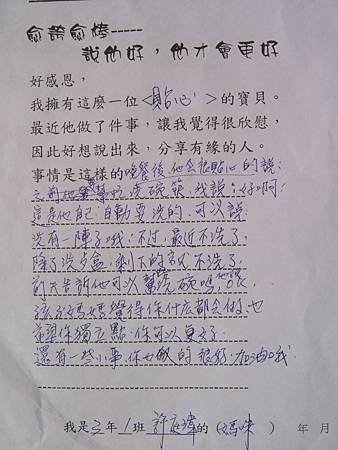 愈誇愈棒-----
說他好，他才會更好
好感恩，
我擁有這麼一位<貼心>的寶貝。
最近他做了件事，讓我覺得很欣慰，
因此好想說出來，分享有緣的人。
事情是這樣的晚餐後,他會很貼心的說:
我說:好啊!
這是他自己自動要洗的,可以說
洗有一陣子哦!不过,最近不洗了,
除了洗夕盒,剩下的就不洗了,
前天告訴他可以幫忙洗碗嗎,他說,
孩子媽媽覺得你什麼都会做,也
希望你獨立點,你可以更好
還有一些小事,你也做的很好,加油哦
我是三年1班許庭瑋的(媽咪)　年　月